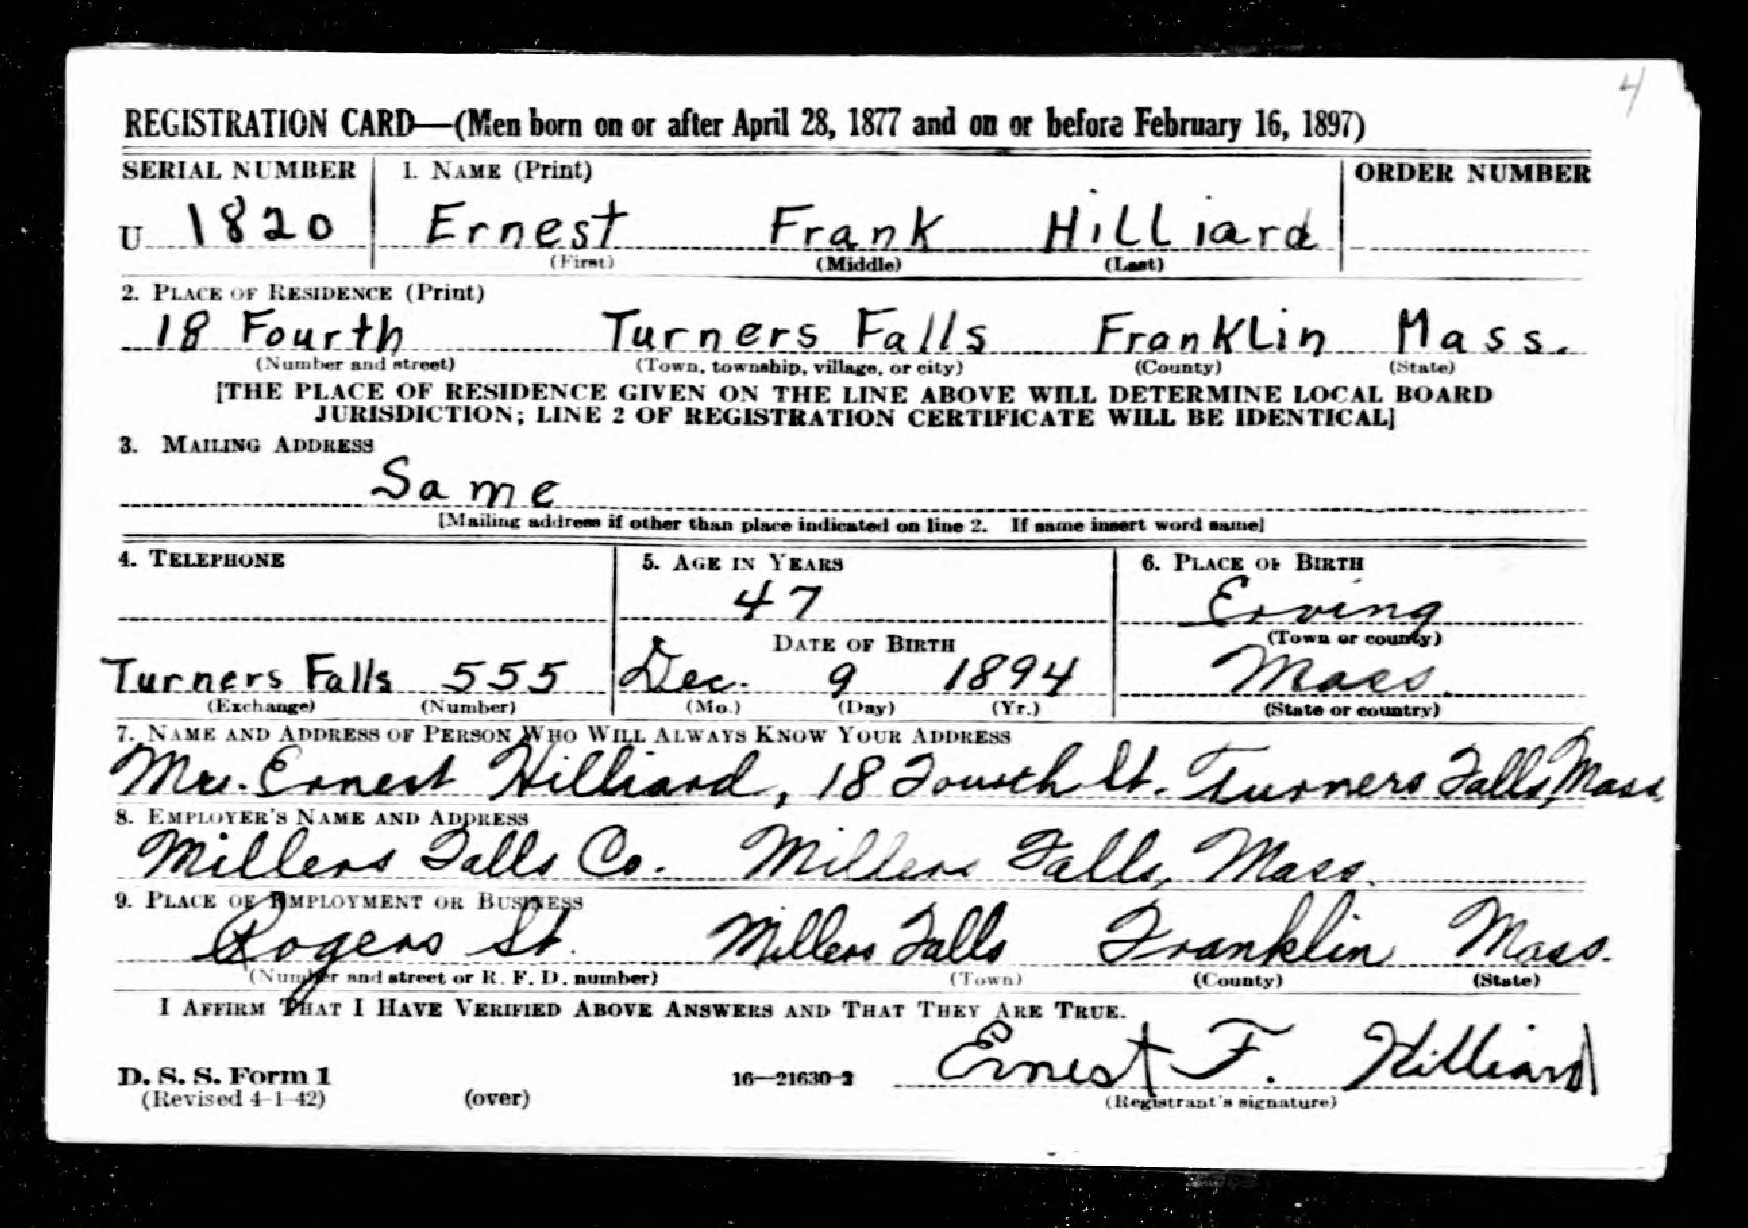 4
REGISTRATION CARD—(Men born on or after April 28, 1877 and on or before February 16, 1897)
SERIAL NUMBER 1. NAME (Print) ORDER NUMBER
U 1820 Ernest Frank Hilliard
(First) (Middle) (Last)
2. PLACE OF RESIDENCE (Print)
18 Fourth Turners Falls Franklin Mass.
(Number and street) (Town, township, village, or city) (County) (State)
[THE PLACE OF RESIDENCE GIVEN ON THE LINE ABOVE WILL DETERMINE LOCAL BOARD
JURISDICTION; LINE 2 OF REGISTRATION CERTIFICATE WILL BE IDENTICAL]
3. MAILING ADDRESS
Same
[Mailing address if other than place indicated on line 2. If same insert word same]
4. TELEPHONE 5. AGE IN YEARS 6. PLACE OF BIRTH
47 Erving
DATE OF BIRTH (Town or county)
Turners Falls 555 Dec. 9 1894 Mass.
(Exchange) (Number) (Mo.) (Day) (Yr.) (State or country)
7. NAME AND ADDRESS OF PERSON WHO WILL ALWAYS KNOW YOUR ADDRESS
Mrs. Ernest Hilliard, 18 Fourth St. Turners Falls, Mass.
8. EMPLOYER'S NAME AND ADDRESS
Millers Falls Co. Millers Falls, Mass.
9. PLACE OF EMPLOYMENT OR BUSINESS
Rogers St. Millers Falls Franklin Mass.
(Number and street or R. F. D. number) (Town) (County) (State)
I AFFIRM THAT I HAVE VERIFIED ABOVE ANSWERS AND THAT THEY ARE TRUE.
Ernest F. Hilliard
D. S. S. Form 1 16—21630-2
(Revised 4-1-42) (over) (Registrant's signature)